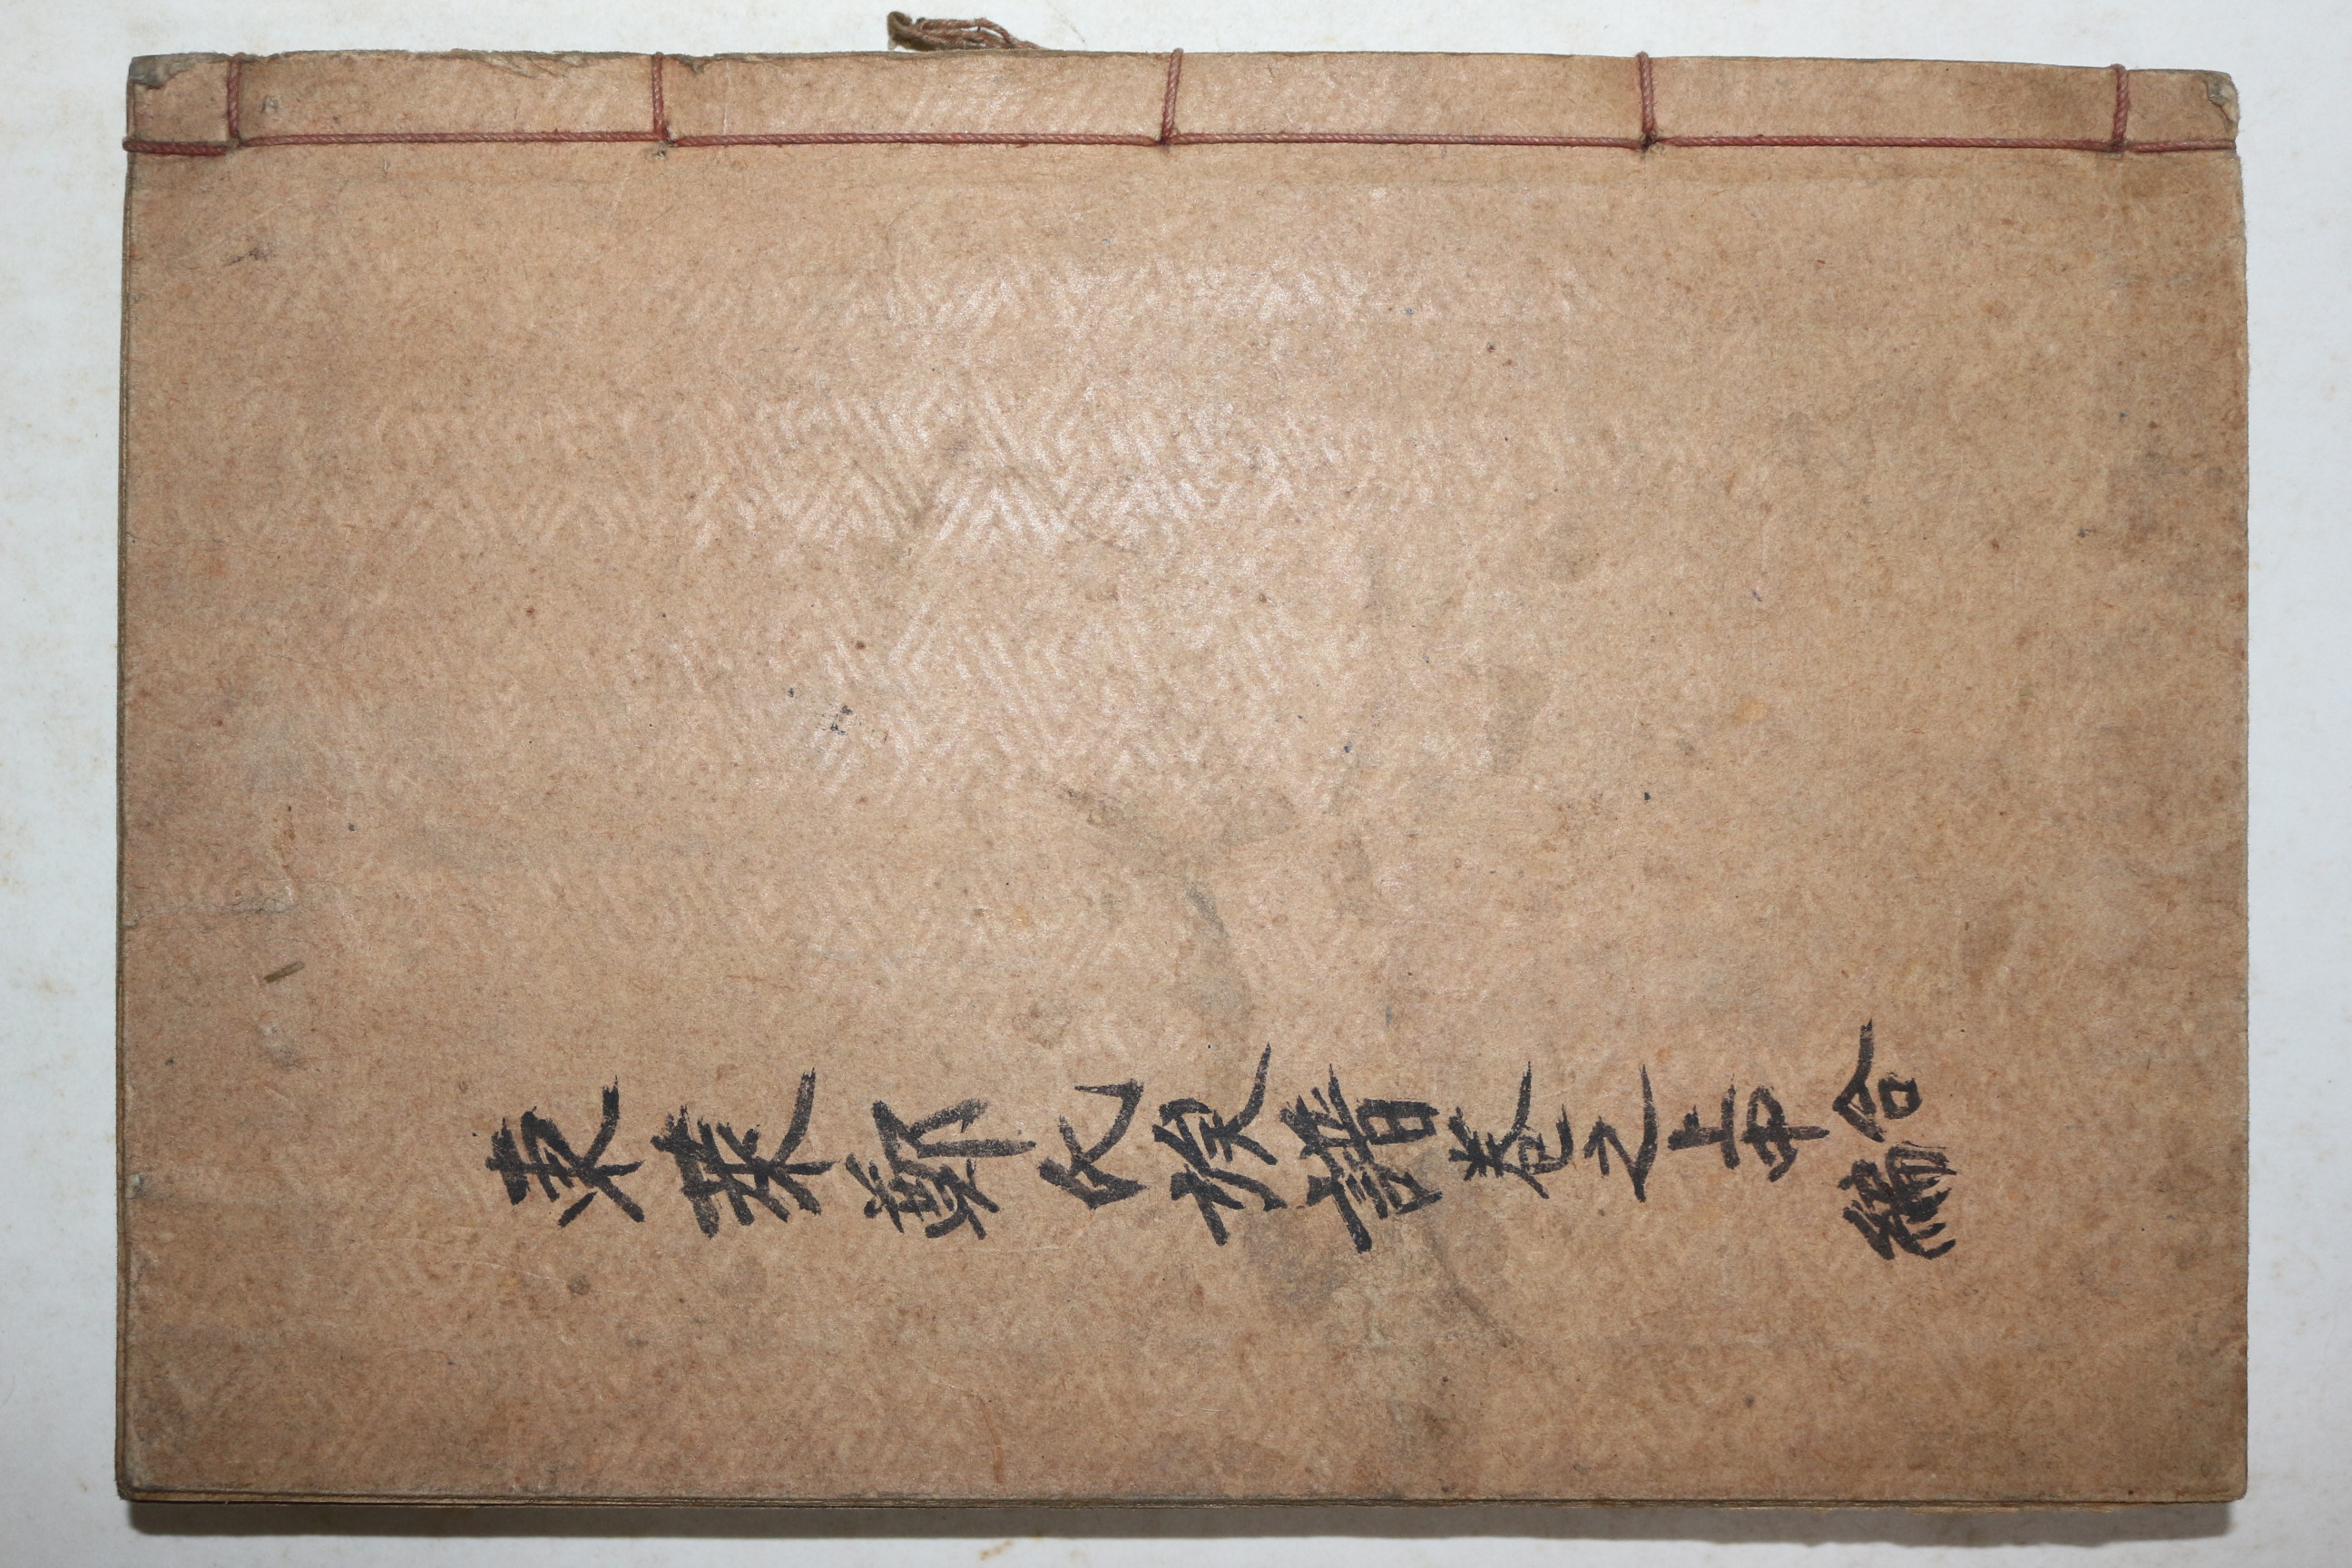 東萊鄭氏族譜卷之上中合編